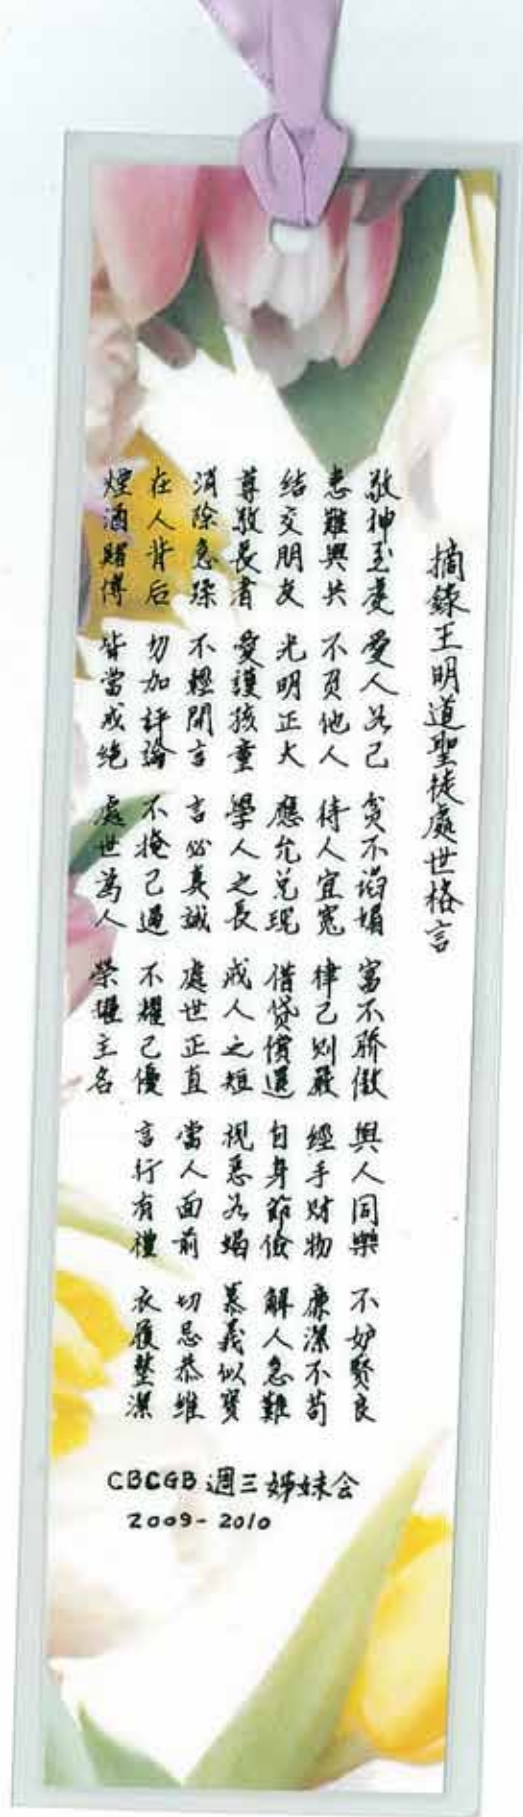 摘錄王明道聖徒處世格言
敬神至虔 愛人如己 貧不諂媚 富不骄傲 與人同樂 不妒賢良
患難與共 不負他人 待人宜宽 律己则嚴 經手财物 廉潔不苟
结交朋友 光明正大 應允兑现 借贷償還 自身節儉 解人急難
尊敬長者 愛護孩童 學人之長 戒人之短 視惡如蝎 慕義似寳
消除急躁 不輕開言 言必真誠 處世正直 當人面前 切忌恭维
在人背后 切加評論 不掩己過 不耀己優 言行有禮 衣履整潔
煙酒賭博 皆當戒绝 處世為人 榮耀主名
CBCGB 週三姊妹会
2009-2010